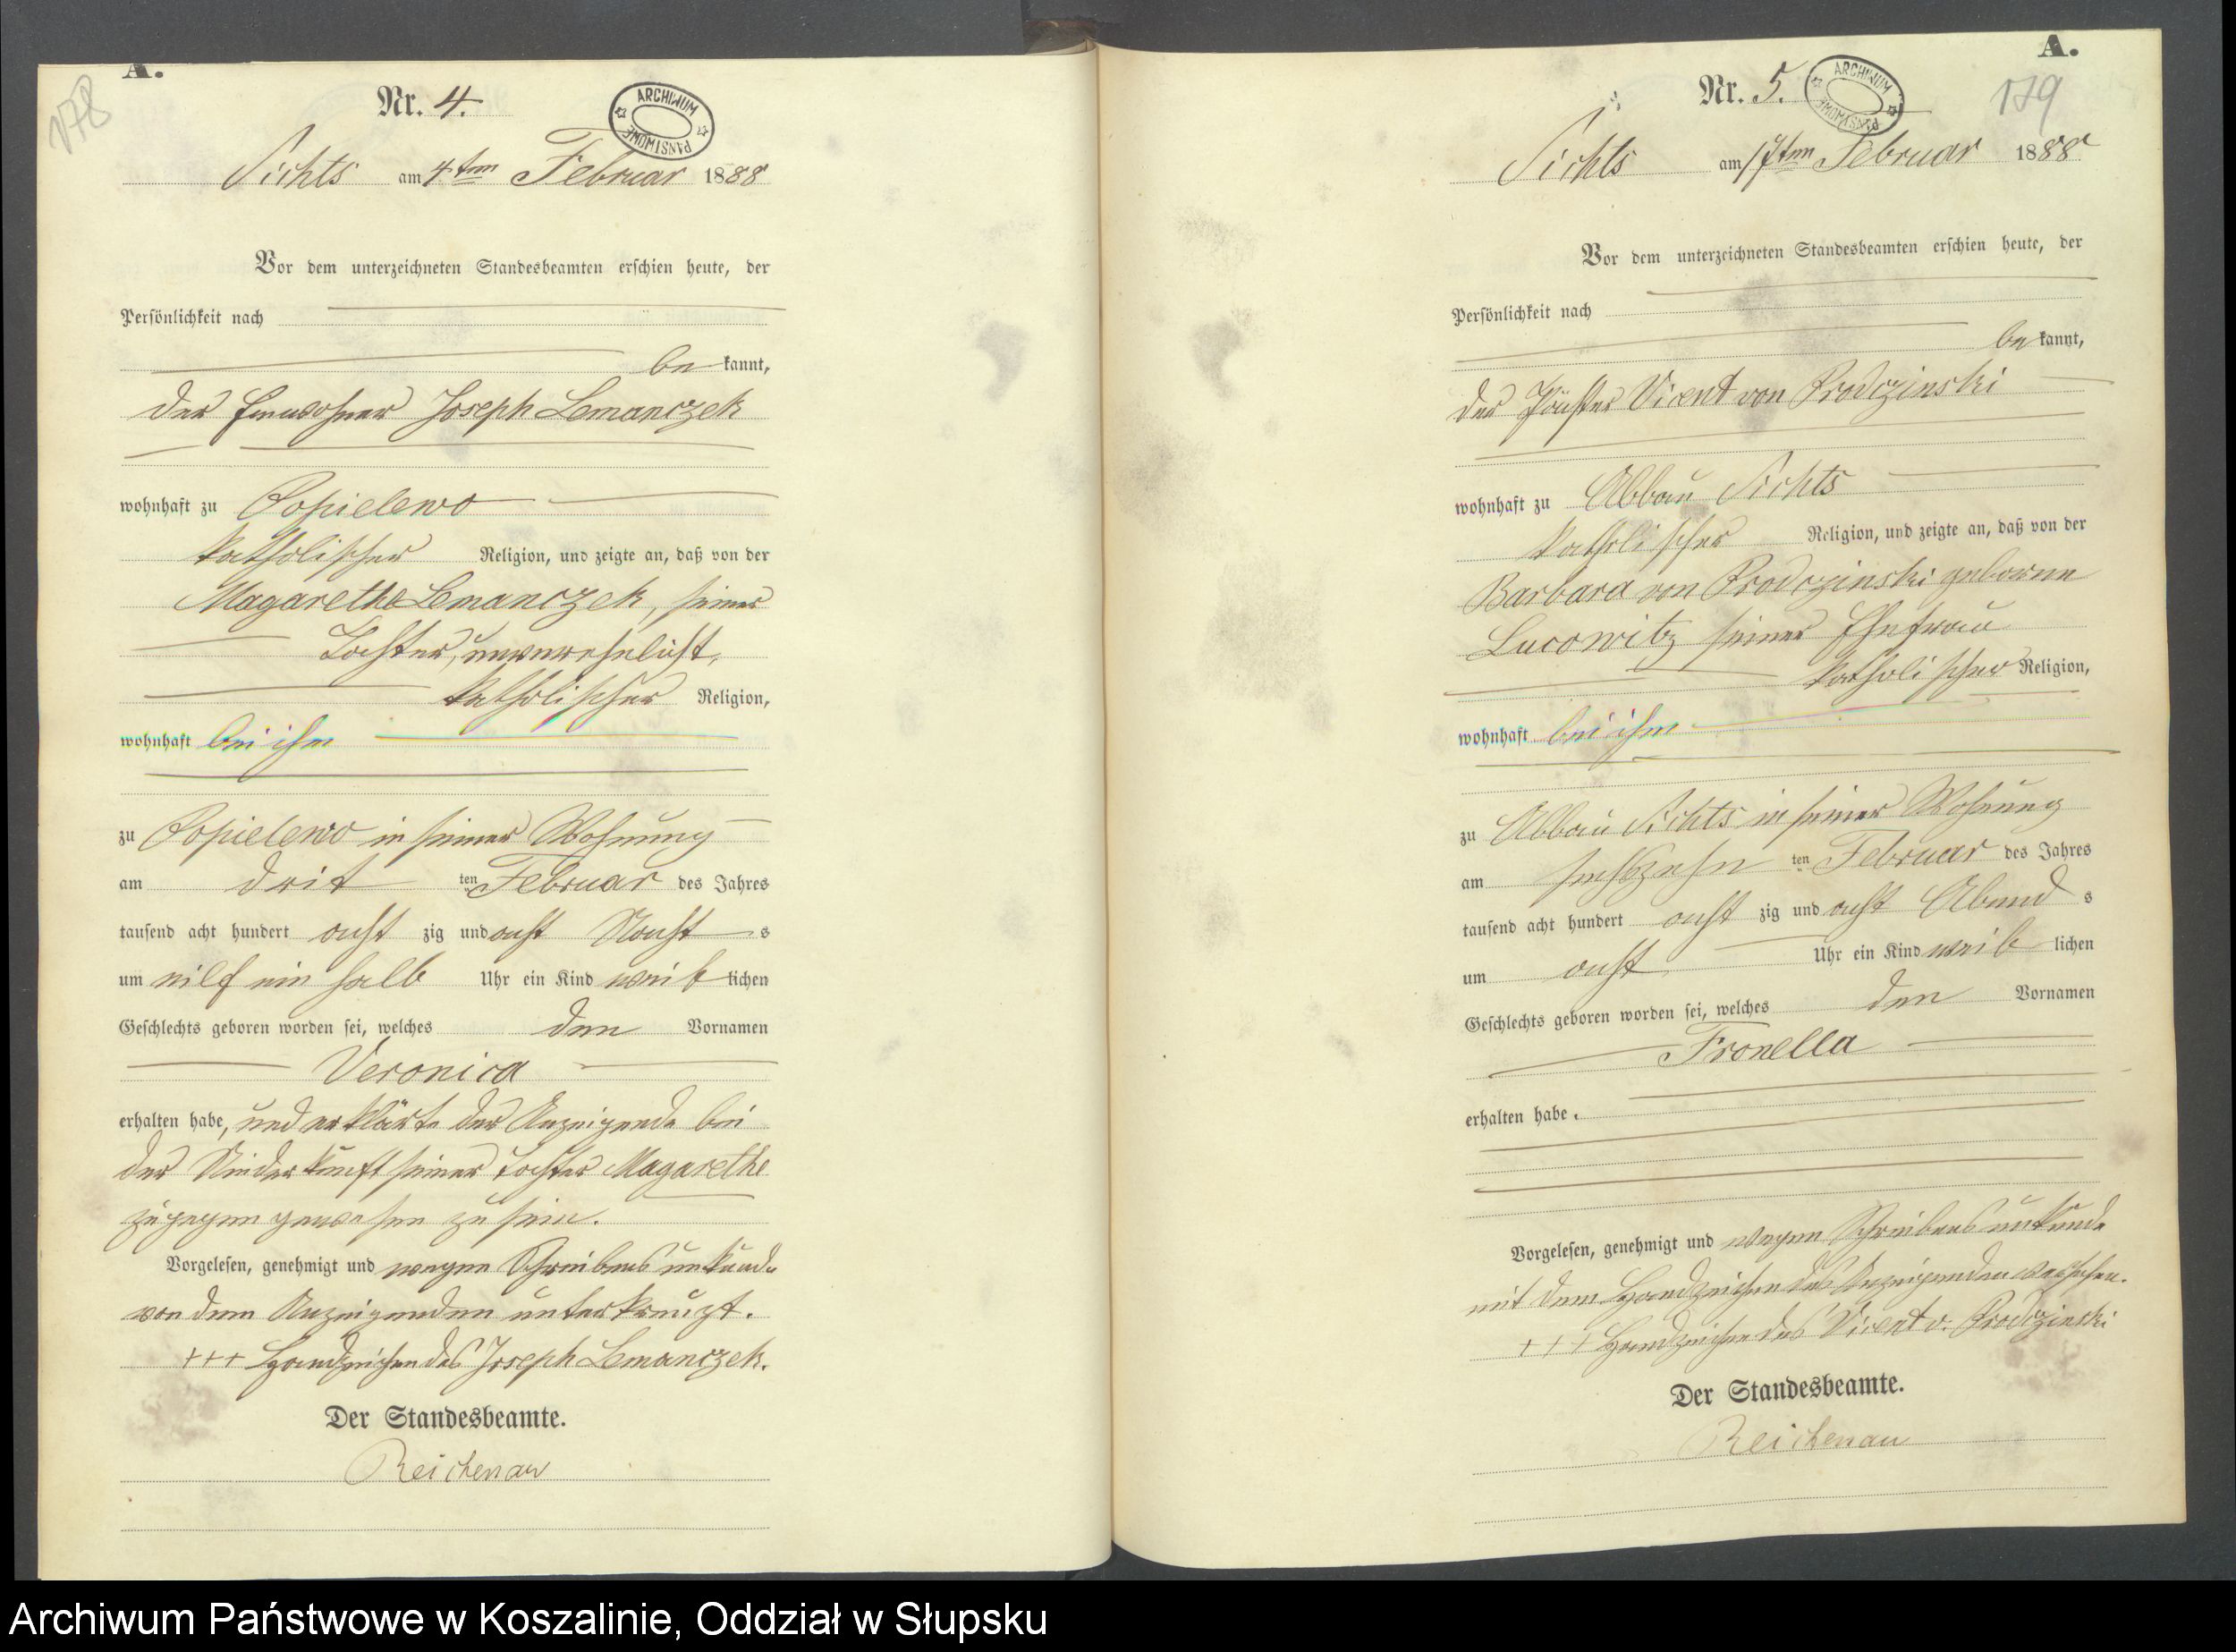 178
A.
Nr. 4.
ARCHIWUM PAŃSTWOWE
Sichts am 4ten Februar 1888
Vor dem unterzeichneten Standesbeamten erschien heute, der
Persönlichkeit nach
bekannt,
der Einwohner Joseph Lemanczek
wohnhaft zu Popielewo
katholischer Religion, und zeigte an, daß von der
Magarethe Lemanczek, seiner
Tochter, unverehelicht,
katholischer Religion,
wohnhaft bei ihm
zu Popielewo in seiner Wohnung
am drit ten Februar des Jahres
tausend acht hundert acht zig und acht Nacht s
um eilf ein halb Uhr ein Kind weib lichen
Geschlechts geboren worden sei, welches den Vornamen
Veronica
erhalten habe, und erklärte der Anzeigende bei
der Niederkunft seiner Tochter Magarethe
zugegen gewesen zu sein.
Vorgelesen, genehmigt und wegen Schreibensunkunde
von dem Anzeigenden unterkreuzt.
+++ Handzeichen des Joseph Lemanczek.
Der Standesbeamte.
Reichenau
A.
Nr. 5.
ARCHIWUM PAŃSTWOWE
179
Sichts am 17ten Februar 1888
Vor dem unterzeichneten Standesbeamten erschien heute, der
Persönlichkeit nach
bekannt,
der Pächter Vicent von Prodczinski
wohnhaft zu Abbau Sichts
katholischer Religion, und zeigte an, daß von der
Barbara von Prodczinski geborne
Lucowitz seiner Ehefrau
katholischer Religion,
wohnhaft bei ihm
zu Abbau Sichts in seiner Wohnung
am sechszehn ten Februar des Jahres
tausend acht hundert acht zig und acht Abend s
um acht Uhr ein Kind weib lichen
Geschlechts geboren worden sei, welches den Vornamen
Fronella
erhalten habe.
Vorgelesen, genehmigt und wegen Schreibensunkunde
mit dem Handzeichen des Anzeigenden versehen.
+++ Handzeichen des Vicent v. Prodczinski
Der Standesbeamte.
Reichenau
Archiwum Państwowe w Koszalinie, Oddział w Słupsku